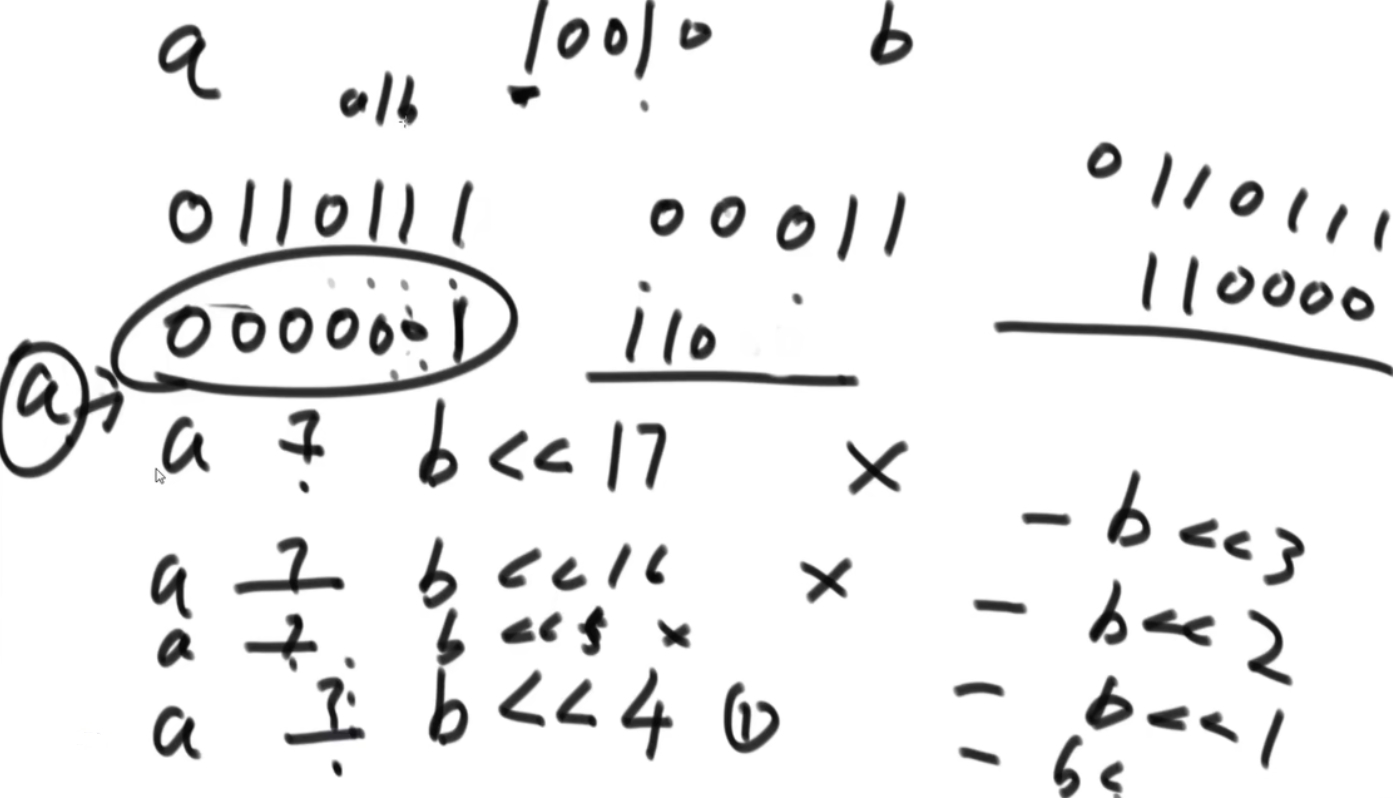 a 10010 b
a/b
0110111 00011 0110111
0000001 110 110000
a
a ? b << 17 ×
a ? b << 16 ×
a ? b << 5 ×
a ? b << 4 ①
- b << 3
- b << 2
- b << 1
- b <